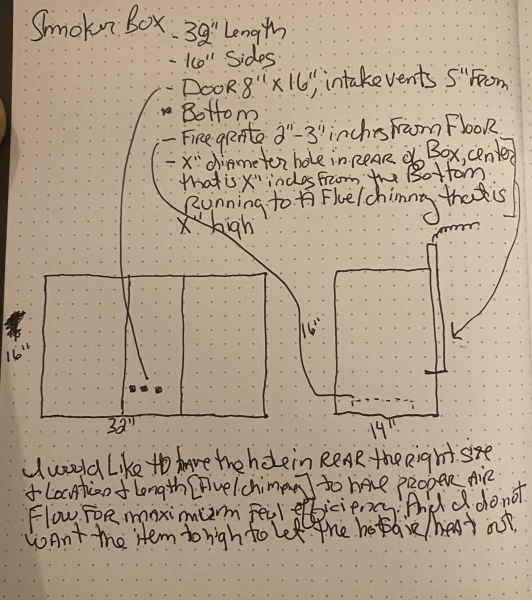 Smoker Box - 32" Length
- 16" Sides
- Door 8" x 16", intake vents 5" From
Bottom
- Fire grate 2"-3" inches From Floor
- X" diameter hole in REAR of Box, center
that is X" inches From the Bottom
Running to A Flue/chimny that is
X" high
16"
32"
16"
14"
I would Like to have the hole in REAR the right size
& Location & Length [Flue/chimney] to have proper AIR
Flow For maximium Feul efficiency. And I do not
want the item to high to let the hot air/heat out.